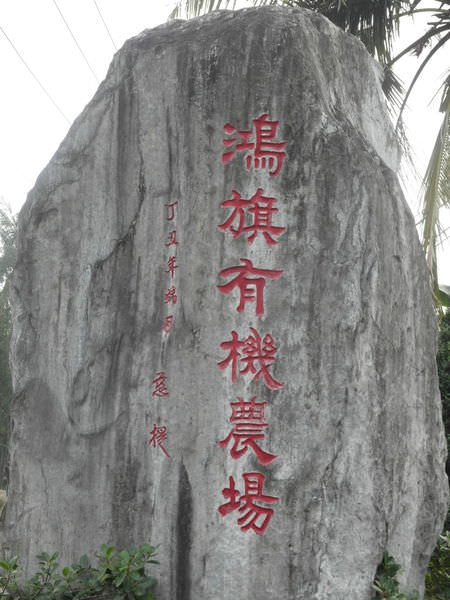 鴻旗有機農場
丁丑年端月